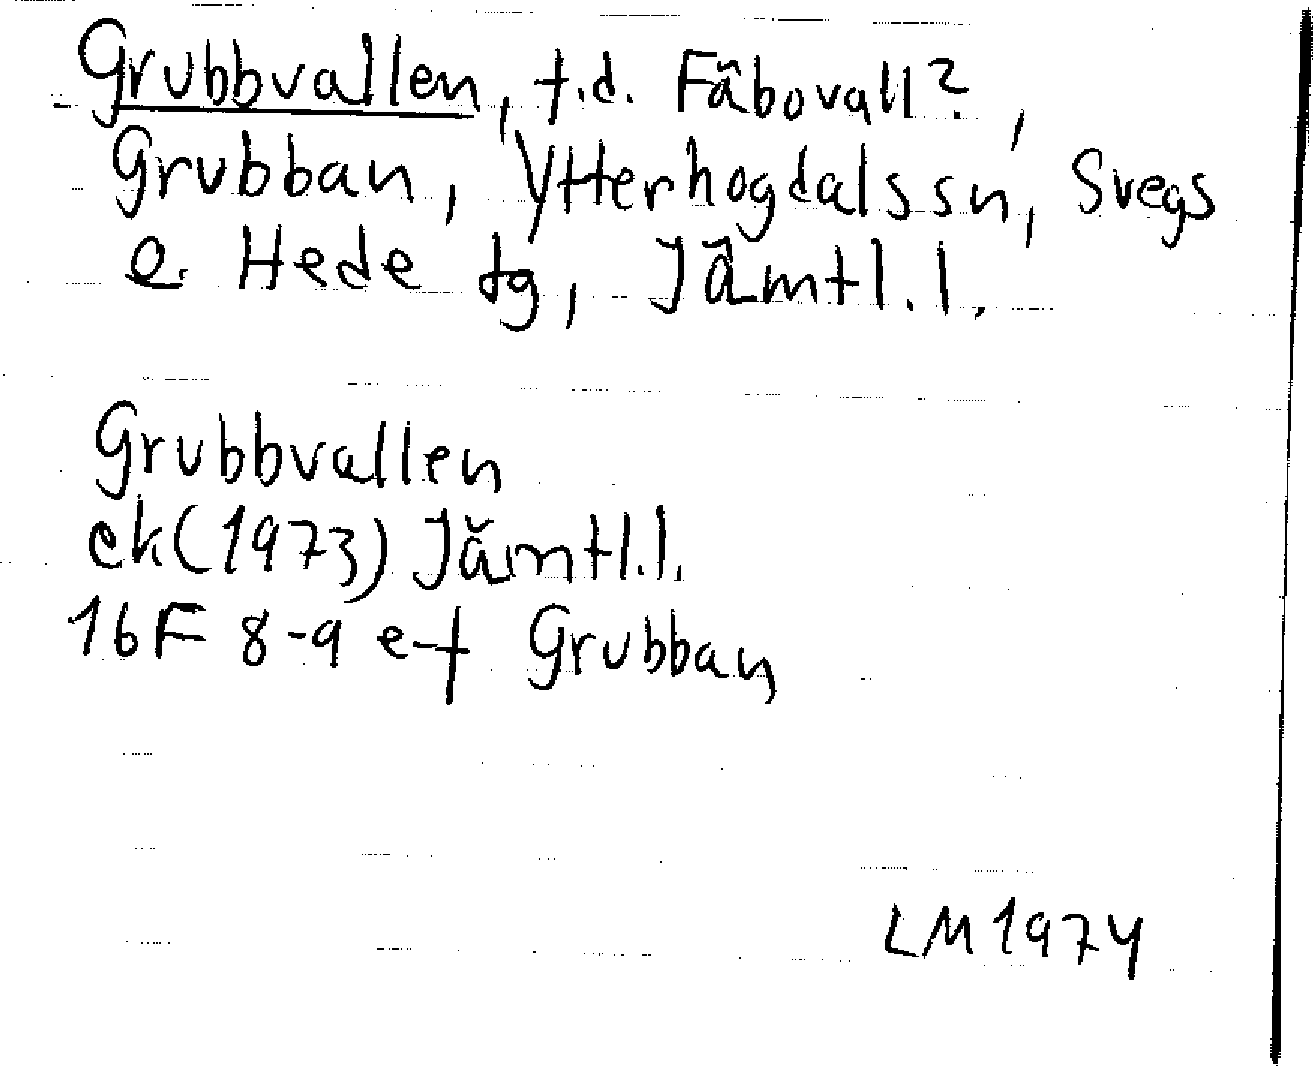 Grubbvallen, t.d. Fäbovall?,
Grubban, Ytterhogdals sn, Svegs
o. Hede tg, Jämtl.l.
Grubbvallen
ek(1973) Jämtl.l.
16F 8-9 e-f Grubban
LM 1974